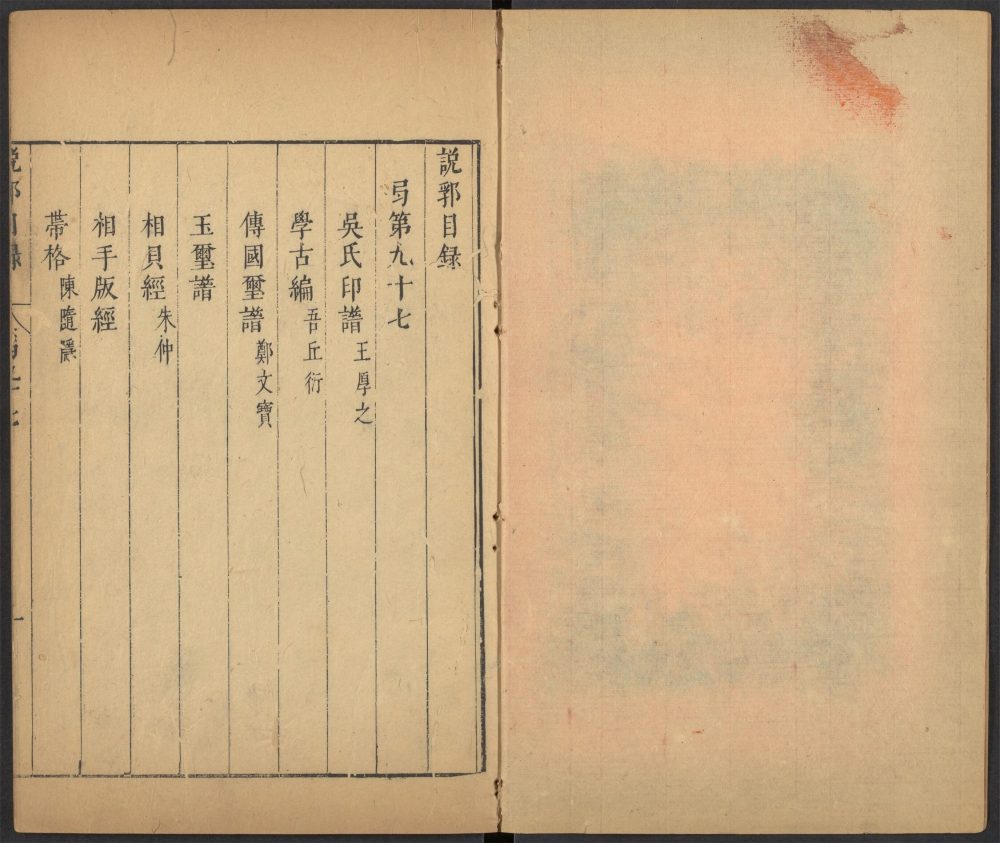 說郛目録
弓第九十七
吳氏印譜 王厚之
學古編 吾丘衍
傳國璽譜 鄭文寶
玉璽譜
相貝經 朱仲
相手版經
帶格 陳隨隱
說郛目錄 弓九十七 一